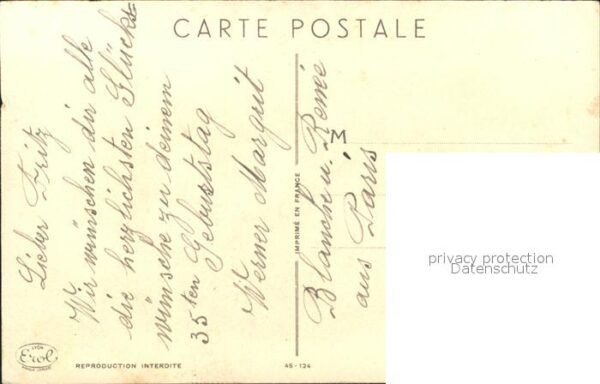 CARTE POSTALE
Lieber Fritz
Wir wünschen dir alle
die herzlichsten Glück=
wünsche zu deinem
35ten Geburtstag
Werner Margrit
Blanche u. René
aus Paris
M
IMPRIMÉ EN FRANCE
privacy protection
Datenschutz
LYON
Erol
REPRODUCTION INTERDITE
45-124